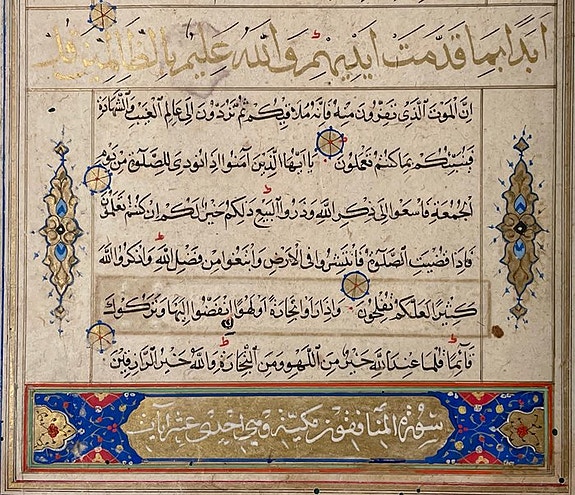 ابدا بما قدمت ايديهم والله عليم بالظالمين قل
ان الموت الذى تفرون منه فانه ملاقيكم ثم تردون الى عالم الغيب والشهادة
فينبئكم بما كنتم تعملون يا ايها الذين آمنوا اذا نودى للصلوة من يوم
الجمعة فاسعوا الى ذكر الله وذروا البيع ذلكم خير لكم ان كنتم تعلمون
فاذا قضيت الصلوة فانتشروا فى الارض وابتغوا من فضل الله واذكروا الله
كثيرا لعلكم تفلحون واذا راوا تجارة او لهوا انفضوا اليها وتركوك
قائما قل ما عند الله خير من اللهو ومن التجارة والله خير الرازقين
سورة المنافقون مكية وهى احدى عشر آيات